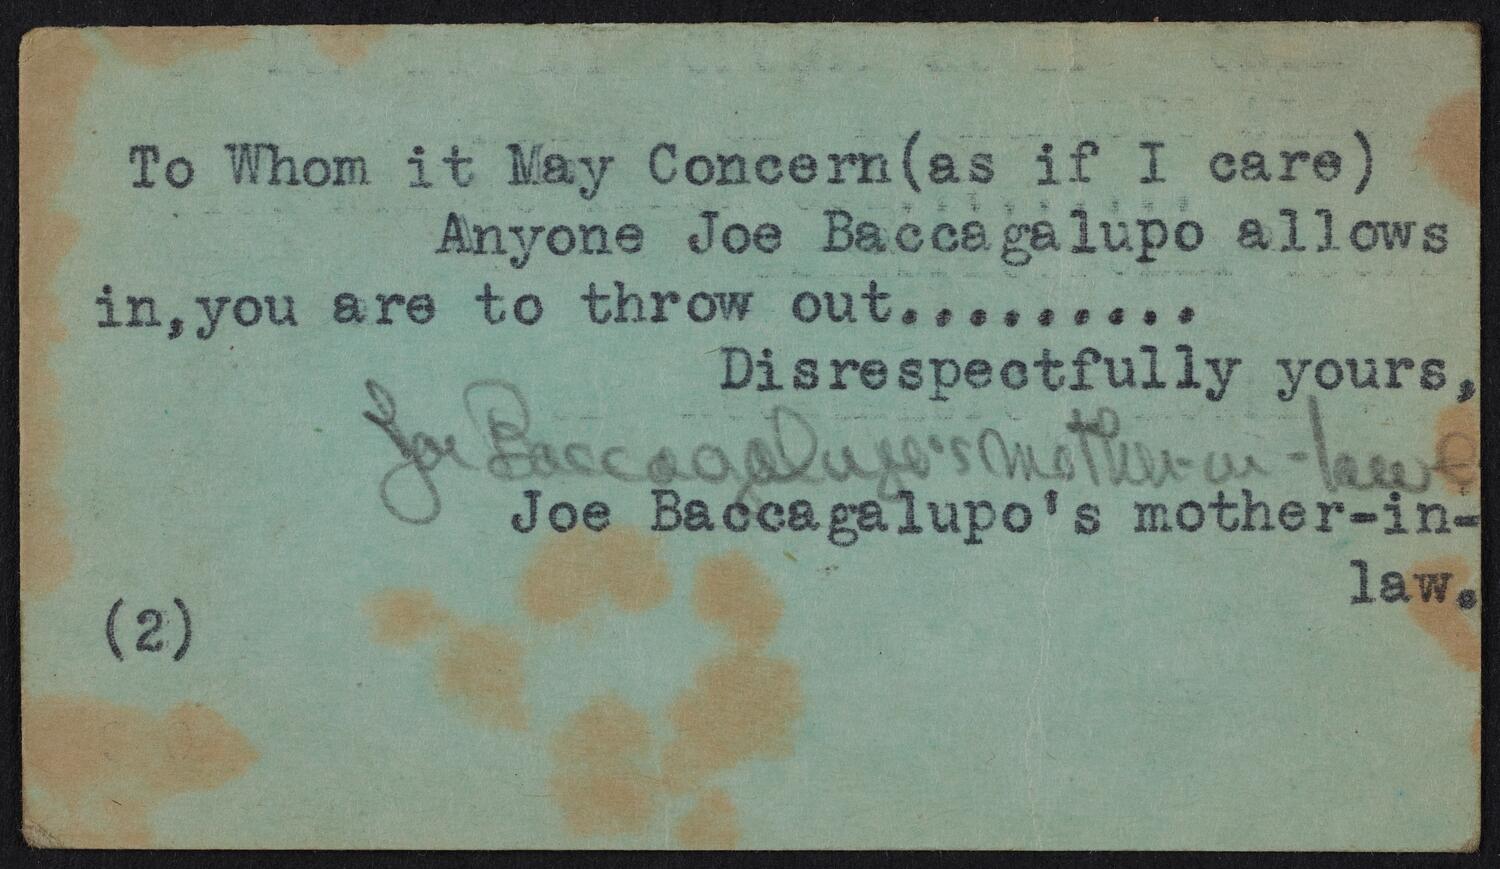 To Whom it May Concern(as if I care)
Anyone Joe Baccagalupo allows
in,you are to throw out..........
Disrespectfully yours,
Joe Baccagalupo's mother-in-law
Joe Baccagalupo's mother-in-
law.
(2)